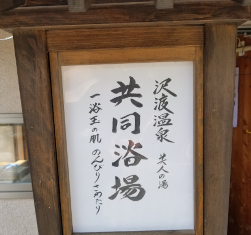 沢渡温泉 美人の湯
共同浴場
一浴玉の肌 のんびりさわたり